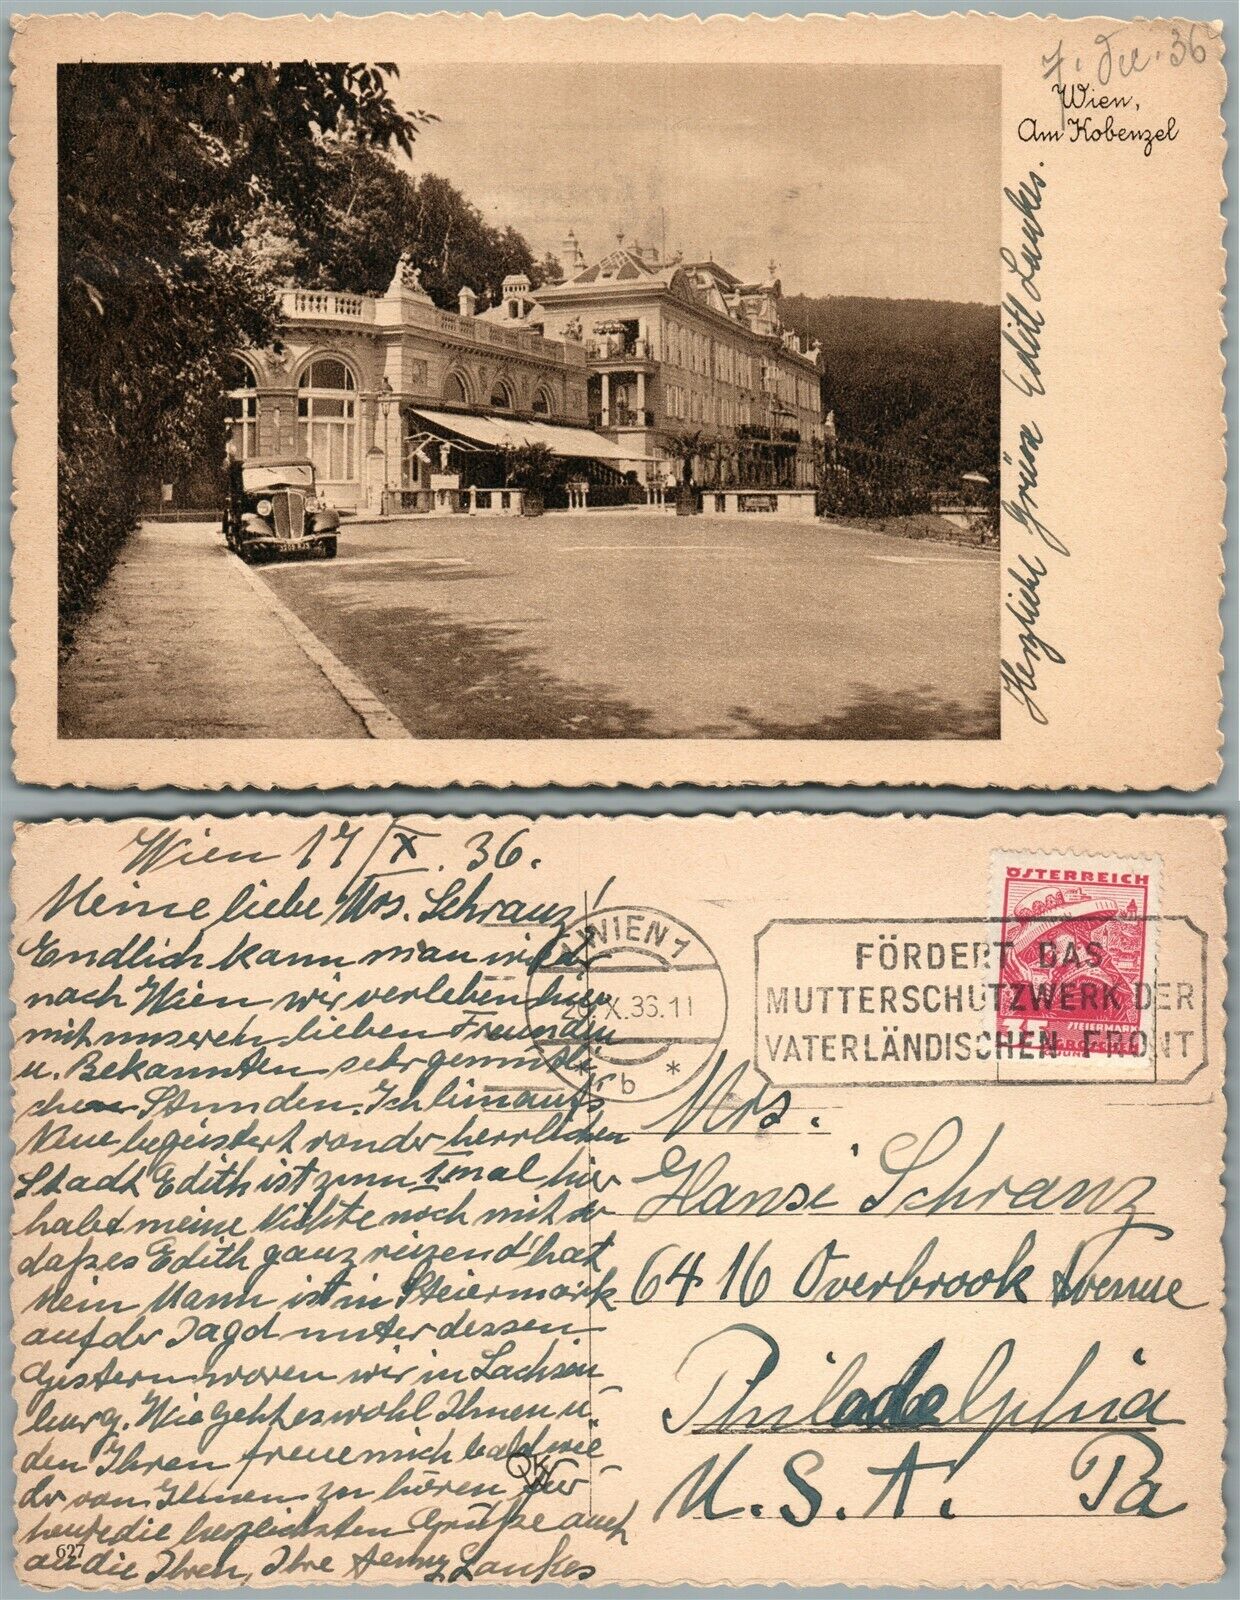 7. Dec. 36
Wien,
Am Kobenzel
Herzliche Grüsse Edith Laukes.
Wien 17/X. 36.
Meine liebe Mrs. Schranz!
Endlich kann man wieder
nach Wien wir verleben hier
mit unseren lieben Freunden
u. Bekannten sehr gemütli-
chen Stunden. Ich bin aufs
Neue begeistert von der herrlichen
Stadt Edith ist zum 1. mal hier
habe meine Nichte noch mit
daß es Edith ganz reizend hat
Mein Mann ist in Steiermark
auf der Jagd unterdessen.
Gestern waren wir in Lachsen
burg. Wie geht es wohl Ihnen u.
den Ihren freue mich bald wie-
der von Ihnen zu hören für
heute die herzlichsten Grüße auch
an die Ihren, Ihre Jenny Laukes
627
ÖSTERREICH
STEIERMARK
1 WIEN 1
20. X. 36. 11
* b *
FÖRDERT DAS
MUTTERSCHUTZWERK DER
VATERLÄNDISCHEN FRONT
Mrs.
Hansi Schranz
6416 Overbrook Avenue
Philadelphia
U. S. A. Pa